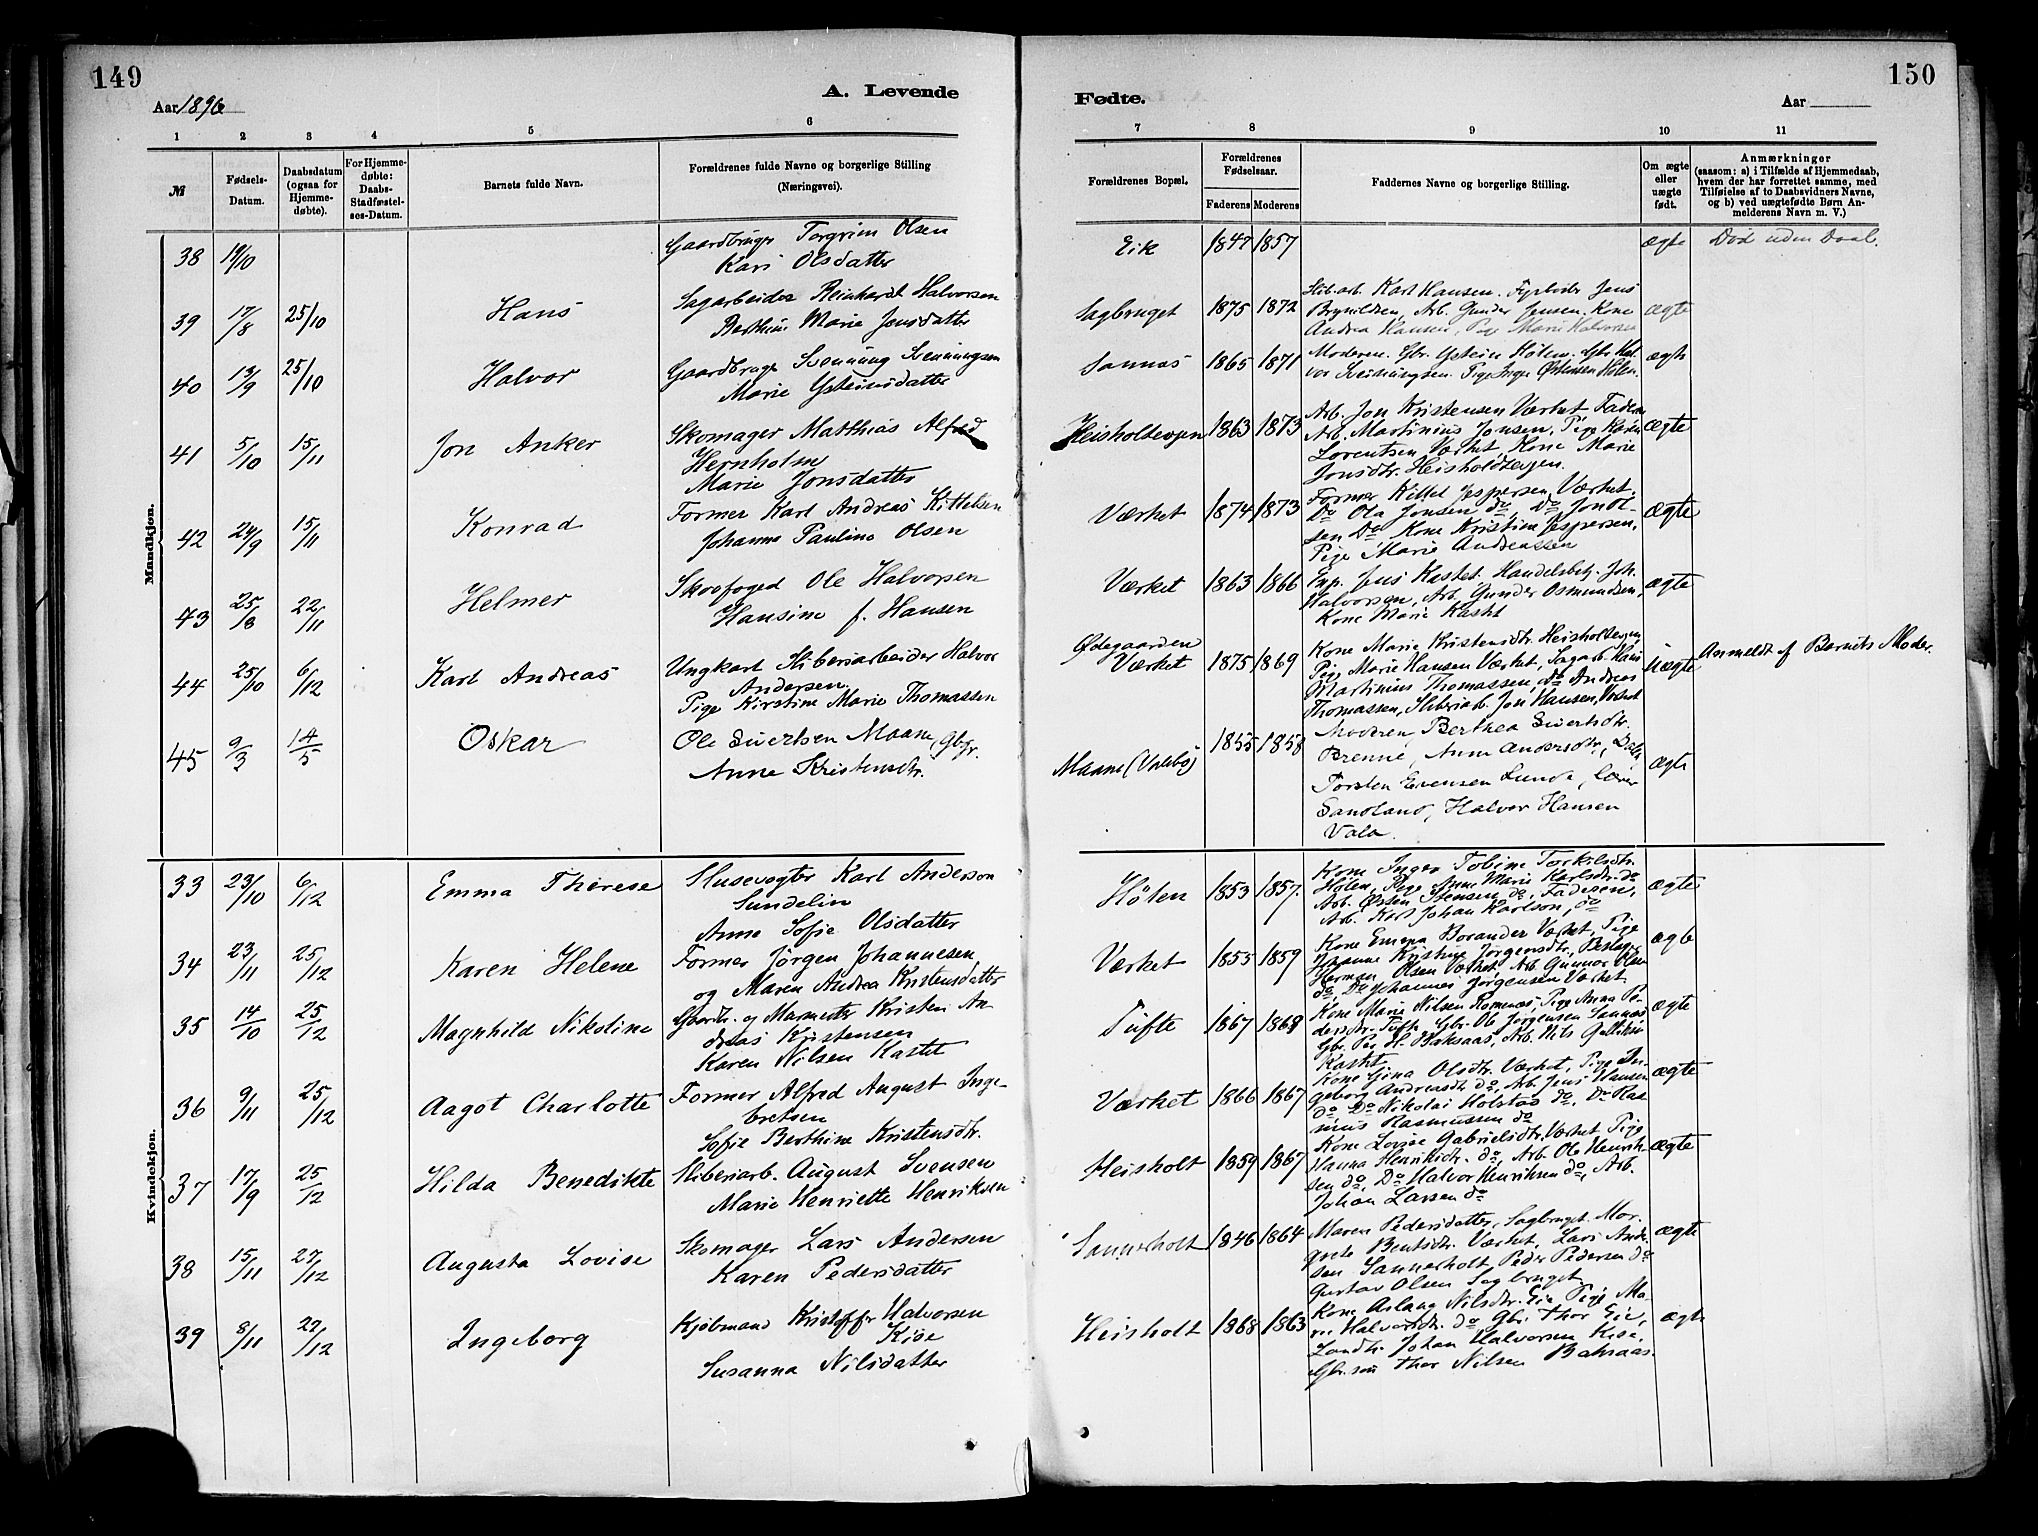 149
Aar 1896
A. Levende
1 2 3 4 5 6
№
Fødsels-
Datum.
Daabsdatum
(ogsaa for
Hjemme-
døbte).
For Hjemme-
døbte:
Daabs-
Stadfæstel-
ses-Datum.
Barnets fulde Navn.
Forældrenes fulde Navne og borgerlige Stilling
(Næringsvei).
Mandkjøn.
38
Gaardbruger Torgrim Olsen
Kari Olsdatter
39 17/8 25/10 Hans
Sagarbeider Reinhardt Halvorsen
Berthine Marie Jensdatter
40 13/9 25/10 Halvor
Gaardbruger Svennung Svennungsen
Marie Ysteinsdatter
41 5/10 15/11 Jon Anker
Skomager Matthias Alfred
Hernholm
Marie Jonsdatter
42 24/9 15/11 Konrad
Former Karl Andreas Kittelsen
Johanne Pauline Olsen
43 25/8 22/11 Helmer
Skovfoged Ole Halvorsen
Hansine f. Hansen
44 25/10 6/12 Karl Andreas
Ungkarl Sliberiarbeider Halvor
Andersen
Pige Kirstine Marie Thomassen
45 9/3 14/5 Oskar
Ole Sivertsen Maane, Gbgr.
Anne Kristensdtr.
Kvindekjøn.
33 23/10 6/12 Emma Therese
Slusevogter Karl Anderson
Sundelin
Anne Sofie Olsdatter
34 23/11 25/12 Karen Helene
Former Jørgen Johannesen
og Maren Andrea Kristensdatter
35 14/10 25/12 Magnhild Nikoline
Gaardbr. og Murmester Kristen An-
dreas Kristensen
Karen Nilsen Kastet
36 9/11 25/12 Aagot Charlotte
Former Alfred August Inge-
bretsen
Sofie Berthine Kristensdtr.
37 17/9 25/12 Hilda Benedikte
Sliberiarb. August Svensen
Marie Henriette Henriksen
38 15/11 27/12 Augusta Lovise
Skomager Lars Andersen
Karen Pedersdatter
39 8/11 27/12 Ingeborg
Kjøbmand Kristoffer Halvorsen
Kise
Susanna Nilsdatter
150
Fødte.
Aar
7 8 9 10 11
Forældrenes Bopæl.
Forældrenes
Fødselsaar.
Faderens Moderens
Faddernes Navne og borgerlige Stilling.
Om ægte
eller
uægte
født.
Anmærkninger
(saasom: a) i Tilfælde af Hjemmedaab,
hvem der har forrettet samme, med
Tilføielse af to Daabsvidners Navne,
og b) ved uægtefødte Børn An-
melderens Navn m. V.)
Eik 1847 1857 ægte Død uden Daab.
Sagbruget 1875 1872 ægte
Slib.arb. Karl Hansen. Fyrbøder Jens
Brynildsen, Arb. Gunder Jensen, Kone
Andrea Hansen, Pige Marie Halvorsen
Sannes 1865 1871 ægte
Moderen. Gbr. Ystein Hølen. Gbr. Hal-
vor Svennungsen. Pige Inger Østensen Hølen.
Heisholtevjen 1863 1873 ægte
Arb. Jon Kristensen Værket, Faderen
Arb. Martinius Jonsen, Pige Karen
Lorentsen Værket, Kone Marie
Jonsdtr. Heisholdtevjen.
Værket 1874 1873 ægte
Former Kittel Jespersen Værket.
Do Ola Jonsen do, Do Jon Ol-
sen Do Kone Kristine Jespersen,
Pige Marie Andreassen
Værket 1863 1866 ægte
Exp. Jens Kastet. Handelsbetj. Joh.
Halvorsen, Arb. Gunder Osmundsen,
Kone Marie Kastet
Ødegaarden
Værket 1875 1869 uægte Anmeldt af Barnets Moder.
Kone Marie Kristensdtr. Heisholtevjen
Pige Marie Hansen Værket, Sagarb. Hans
Martinius Thomassen, do Andreas
Thomassen, Sliberiarb. Jon Hansen, Værket
Maane (Valebø) 1855 1858 ægte
Moderen, Berthea Sivertsdtr.
Brenne, Anne Andersdtr.,
Torsten Evensen Lunde,
Sandland, Halvor Hansen
Vala.
Hølen 1853 1857. ægte
Kone Inger Tobine Torkilsdtr.
Hølen, Pige Anne Marie Karlsdtr. do
Arb. Østen Stensen do, Faderen,
Arb. Karl Johan Karlson, do
Værket 1855 1859 ægte
Kone Emma Borander Værket, Pige
Johanne Kristine Jørgensdtr., Bestyrer
Herman Olsen Værket, Arb. Gunnar Olsen
do, Do Johannes Jørgensen Værket.
Tufte 1867 1868 ægte
Kone Marie Nilsen Romnæs, Pige Anna Pe-
dersdtr. Tufte, Gbr. Ole Jørgensen Sannæs
Gbr. Per H. Baksaas, Arb. Nils Gulliksen
Kastet
Værket 1866 1867 ægte
Kone Gina Olsdtr. Værket, Pige In-
geborg Andreasdtr. do, Arb. Jens Hansen
do, Do Nikolai Holstad do, Do Ras-
mus Rasmussen do
Heisholt 1859 1867 ægte
Kone Lovise Gabrielsdtr. Værket Pige
Hanna Henriksdtr. do, Arb. Ole Henrik-
sen do, Do Halvor Henriksen do, Arb.
Johan Larsen do
Sannerholt 1846 1864 ægte
Maren Pedersdatter, Sagbruget. Mar-
grete Bentsdtr. Værket, Lars Ander-
sen Sannerholt, Peder Pedersen do
Gustav Olsen Sagbruget
Heisholt 1868 1863 ægte
Kone Aslaug Nilsdtr. Eie Pige Ma-
rie Halvorsdtr. do Gbr. Thor Eie,
Landh. Johan Halvorsen Kise,
Gbr.søn Thor Nilsen Baksaas.